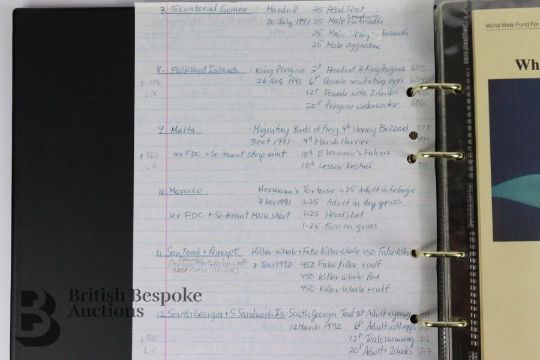 7. Ecuatorial Guinea: Mandrill 25 Head Shot
20 July 1991 25 Male
25 Male
25 Male aggressive
World Wide Fund For
Wh
8. Falkland Islands: King Penguins 2p Head of 2 King Penguins 633
26 Aug 1991 6p Female incubating eggs
L.V. 12p Female with 2 chicks
20p Penguin underwater 636
9. Malta Migratory Birds of Prey 4d Honey Buzzard
3 Oct 1991 4d Marsh Harrier
4x FDC + Se-tenant strip mint 10d Eleonora's Falcon
L.V. 10d Lesser Kestrel
10. Monaco Hermann's Tortoise 1.25 Adult in foliage
7 Nov 1991 1.25 Adult in dry grass
4x FDC + Se-tenant Mini sheet 1.25 Head Shot
1.25 Two in grass
11. San Tome + Principe Killer Whale + False Killer Whale 450 False Killer
7 Jan 1992 450 False Killer + calf
450 Killer Whale Pod
450 Killer Whale + calf
British Bespoke
Auctions
12. South Georgia + S Sandwich Is: South Georgia Teal 2p Adult + young
12 March 1992 6p Adult with eggs
12p Teals swimming 216
L.V. 20p Adult + 2 chicks 217